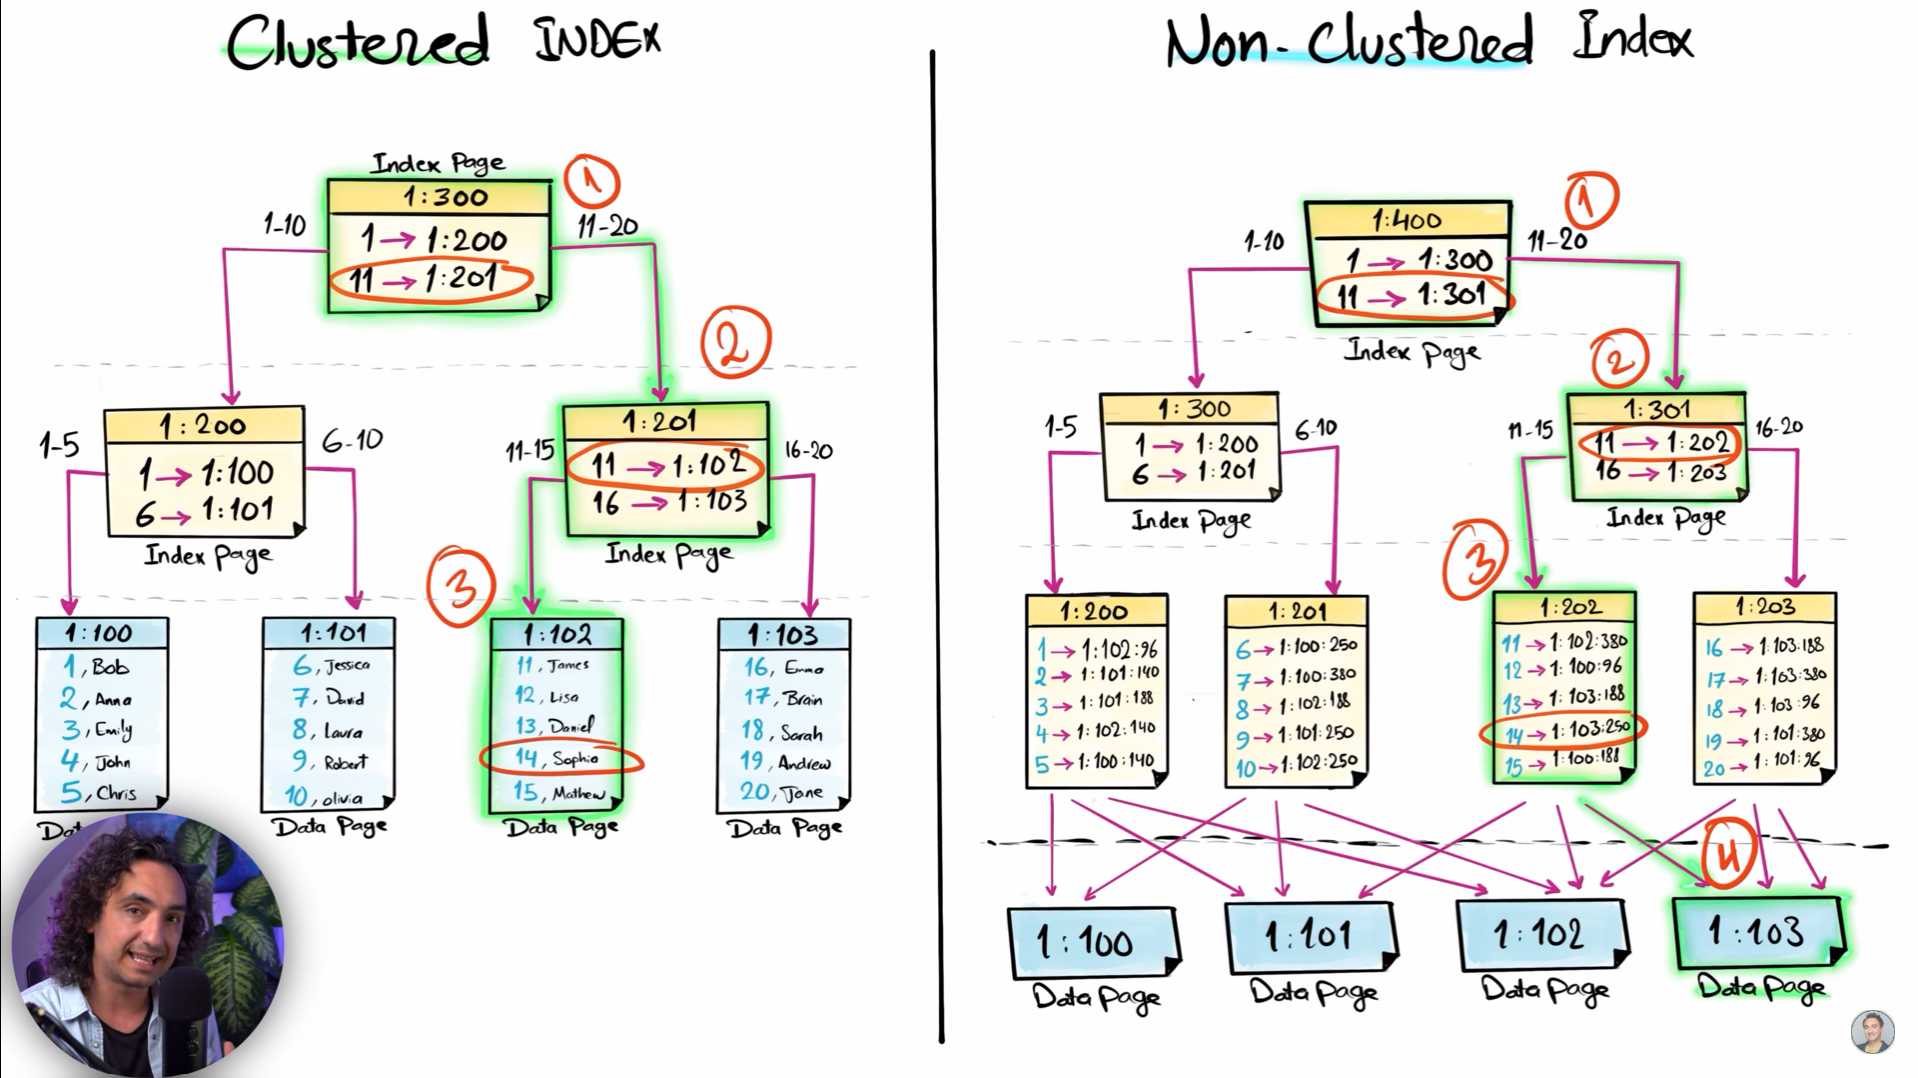 Clustered INDEX
Index Page
1:300
1 → 1:200
11 → 1:201
1
1-10
11-20
2
1:200
1 → 1:100
6 → 1:101
Index Page
1-5
6-10
1:201
11 → 1:102
16 → 1:103
Index Page
11-15
16-20
3
1:100
1, Bob
2, Anna
3, Emily
4, John
5, Chris
1:101
6, Jessica
7, David
8, Laura
9, Robert
10, olivia
Data Page
1:102
11, James
12, Lisa
13, Daniel
14, Sophia
15, Mathew
Data Page
1:103
16, Emma
17, Brain
18, Sarah
19, Andrew
20, Jane
Data Page
Non-Clustered Index
1:400
1 → 1:300
11 → 1:301
Index Page
1
1-10
11-20
2
1:300
1 → 1:200
6 → 1:201
Index Page
1-5
6-10
1:301
11 → 1:202
16 → 1:203
Index Page
11-15
16-20
3
1:200
1 → 1:102:96
2 → 1:101:140
3 → 1:101:188
4 → 1:102:140
5 → 1:100:140
1:201
6 → 1:100:250
7 → 1:100:380
8 → 1:102:188
9 → 1:101:250
10 → 1:102:250
1:202
11 → 1:102:380
12 → 1:100:96
13 → 1:103:188
14 → 1:103:250
15 → 1:100:188
1:203
16 → 1:103:188
17 → 1:103:380
18 → 1:103:96
19 → 1:101:380
20 → 1:101:96
4
1:100
Data Page
1:101
Data Page
1:102
Data Page
1:103
Data Page